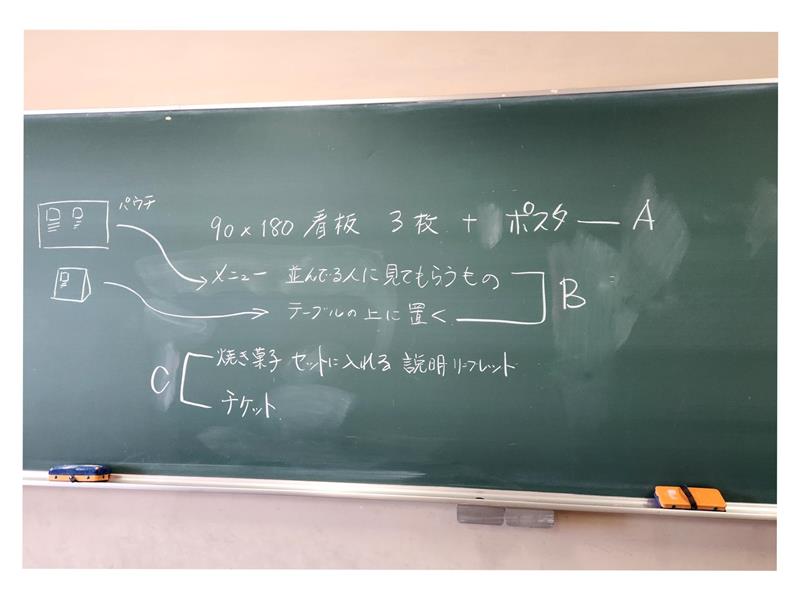 パウチ
90×180 看板 3枚 + ポスター A
メニュー 並んでる人に見てもらうもの
テーブルの上に置く
B
C
焼き菓子 セットに入れる 説明リーフレット
チケット